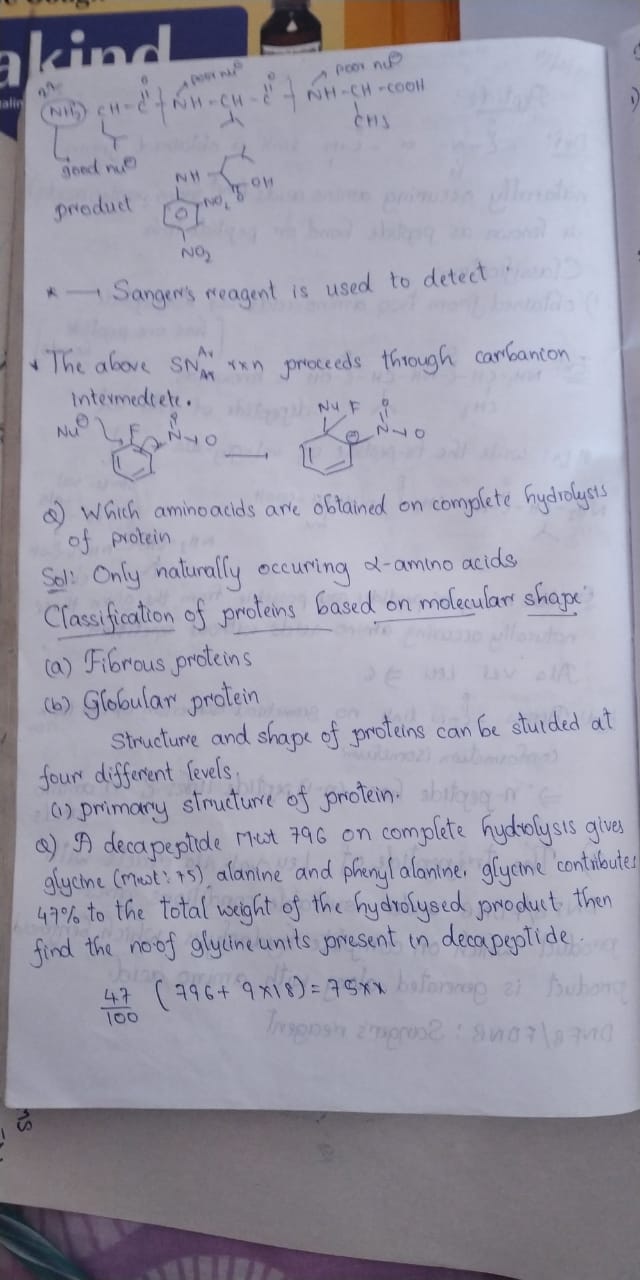 akind
NH₂ CH - C NH - CH - C NH - CH - COOH
O poor nu⊖ O poor nu⊖
CH3
good nu⊖
product NH OH
NO₂ O
NO₂
* → Sanger's reagent is used to detect
* The above SN Ar rxn proceeds through carbanion
intermediete.
Nu⊖ F N O O Nu F N O O
Q) Which aminoacids are obtained on complete hydrolysis
of protein
Sol: Only naturally occuring α-amino acids
Classification of proteins based on molecular shape:
(a) Fibrous proteins
(b) Globular protein
Structure and shape of proteins can be stuided at
four different levels.
(1) primary structure of protein.
Q) A decapeptide Mwt 796 on complete hydrolysis gives
glycine (mwt: 75) alanine and phenyl alanine. glycine contributes
47% to the total weight of the hydrolysed product then
find the no of glycine units present in decapeptide.
47/100 (796 + 9x18) = 75xx